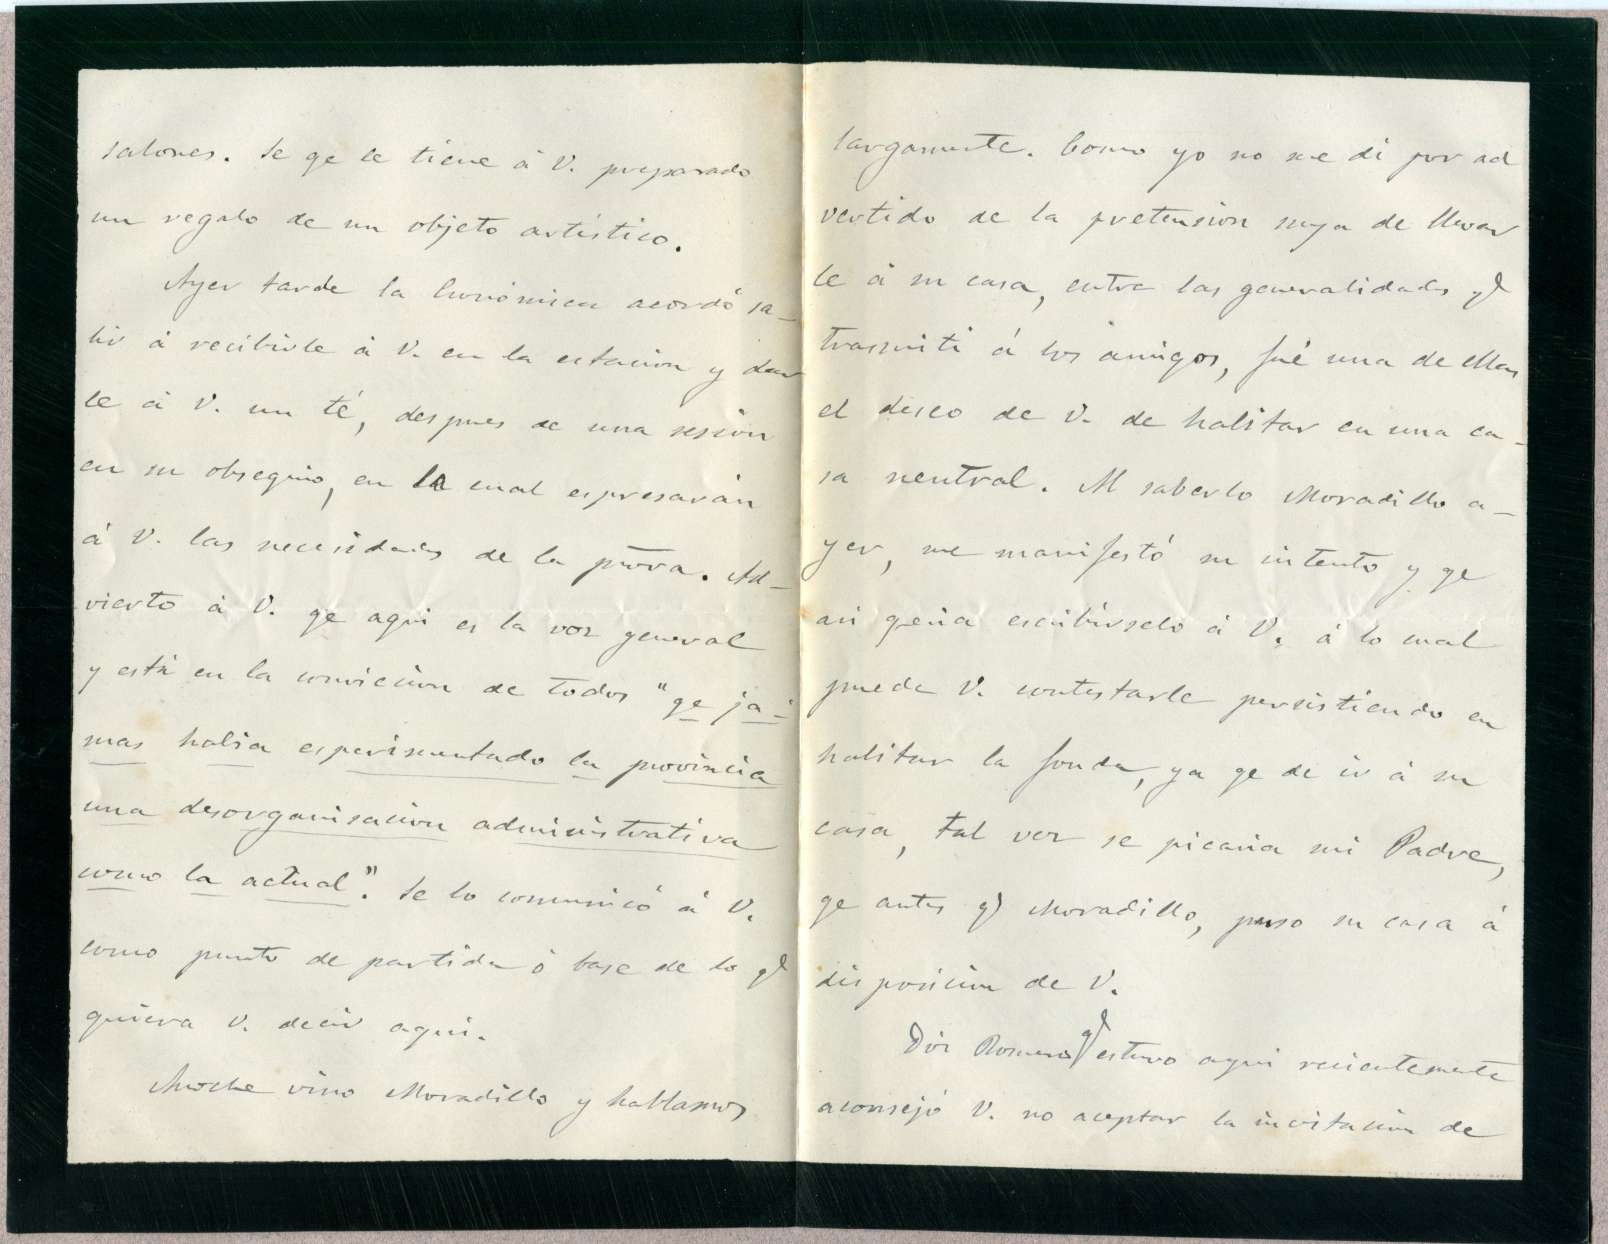 salones. Se qe le tiene á V. preparado
un regalo de un objeto artístico.
Ayer tarde la Económica acordó sa-
lir á recibirle á V. en la estacion y dar
le á V. un té, despues de una sesion
en su obsequio, en la cual espresarán
á V. las necesidades de la prova. Ad-
vierto á V. qe aqui es la voz general
y está en la conviccion de todos "qe ja-
mas habia esperimentado la provincia
una desorganisacion administrativa
como la actual". Se lo comunicó á V.
como punto de partida ó base de lo q
quiera V. decir aqui.
Anoche vino Moradillo y hablamos
largamente. Como yo no me di por ad
vertido de la pretension suya de llevar
le á su casa, entre las generalidades q
trasmiti á los amigos, fué una de ellas
el deseo de V. de habitar en una ca-
sa neutral. Al saberlo Moradillo a-
yer, me manifestó su intento y qe
asi qeria escribírselo á V. á lo cual
puede V. contestarle persistiendo en
habitar la fonda, ya qe de ir á su
casa, tal vez se picaria mi Padre,
qe antes q Moradillo, puso su casa á
disposicion de V.
Romero q estuvo aqui recientemente
aconsejó V. no aceptar la invitacion de